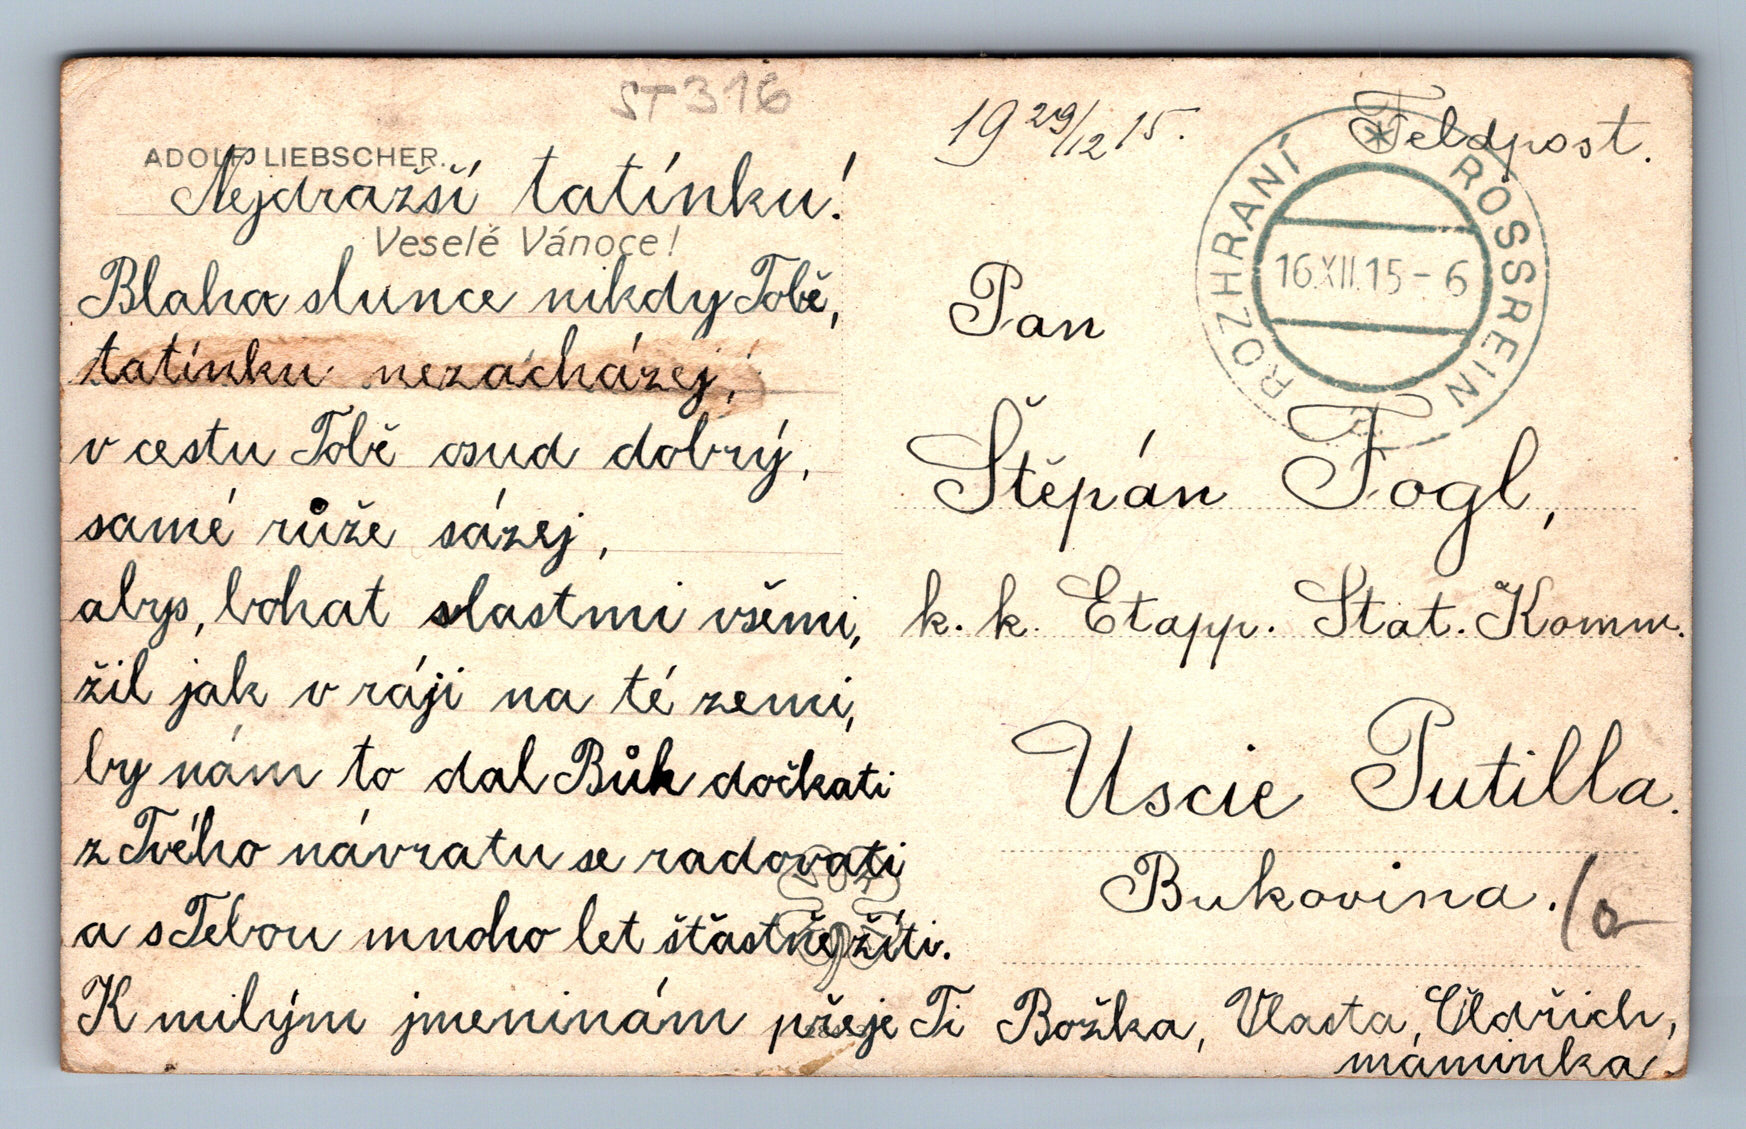 ST316
ADOLF LIEBSCHER.
Nejdražší tatínku!
Veselé Vánoce!
Blaha slunce nikdy Tobě,
tatínku nezacházej,
v cestu Tobě osud dobrý,
samé růže sázej,
abys, bohat slastmi všemi,
žil jak v ráji na té zemi,
by nám to dal Bůh dočkati
z Tvého návratu se radovati
a s Tebou mnoho let šťastně žíti.
K milým jmeninám přeje Ti Božka, Vlasta, Oldřich,
máminka.
19 29/12 15.
Feldpost.
ROZHRANÍ * ROSSREIN
16.XII.15-6
Pan
Štěpán Fogl,
k. k. Etapp. Stat. Komm.
Uscie Putilla.
Bukovina.